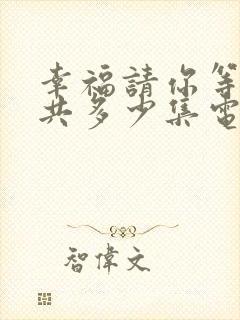 幸福請你等
共多少集電
智偉文